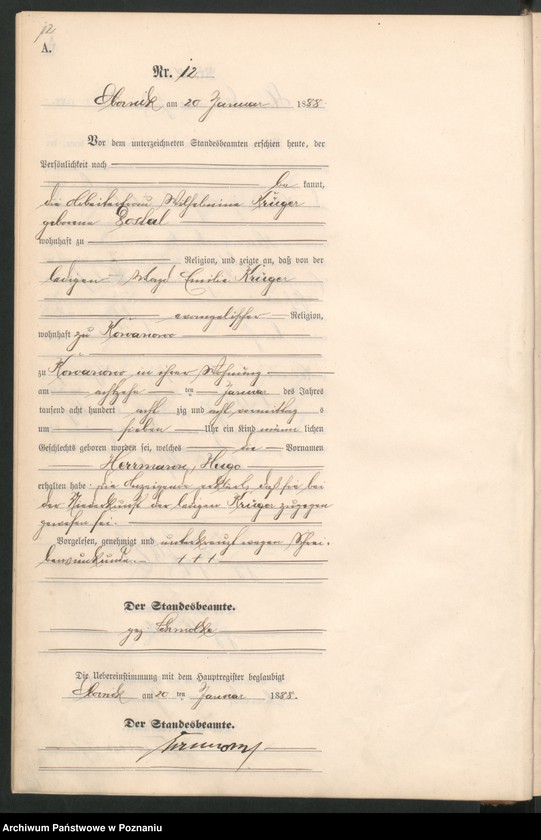 12
A.
Nr. 12
Obornik am 20 Januar 1888.
Vor dem unterzeichneten Standesbeamten erschien heute, der
Persönlichkeit nach
be kannt,
die Arbeiterfrau Wilhelmine Krüger
geborene
wohnhaft zu
Religion, und zeigte an, daß von der
ledigen Magd Emilie Krüger
evangelischer Religion,
wohnhaft zu Kowanowo
zu Kowanowo in ihrer Wohnung
am achtzehn ten Januar des Jahres
tausend acht hundert acht zig und acht vormittag s
um sieben Uhr ein Kind männ lichen
Geschlechts geboren worden sei, welches die Vornamen
Herrmann, Hugo
erhalten habe. die Anzeigende erklärt, daß sie bei
der Niederkunft der ledigen Krüger zugegen
gewesen sei.
Vorgelesen, genehmigt und unterkreuzt wegen Schrei-
bensunkunde. +++
Der Standesbeamte.
gez.
Die Uebereinstimmung mit dem Hauptregister beglaubigt
Obornik am 20 ten Januar 1888.
Der Standesbeamte.
Archiwum Państwowe w Poznaniu